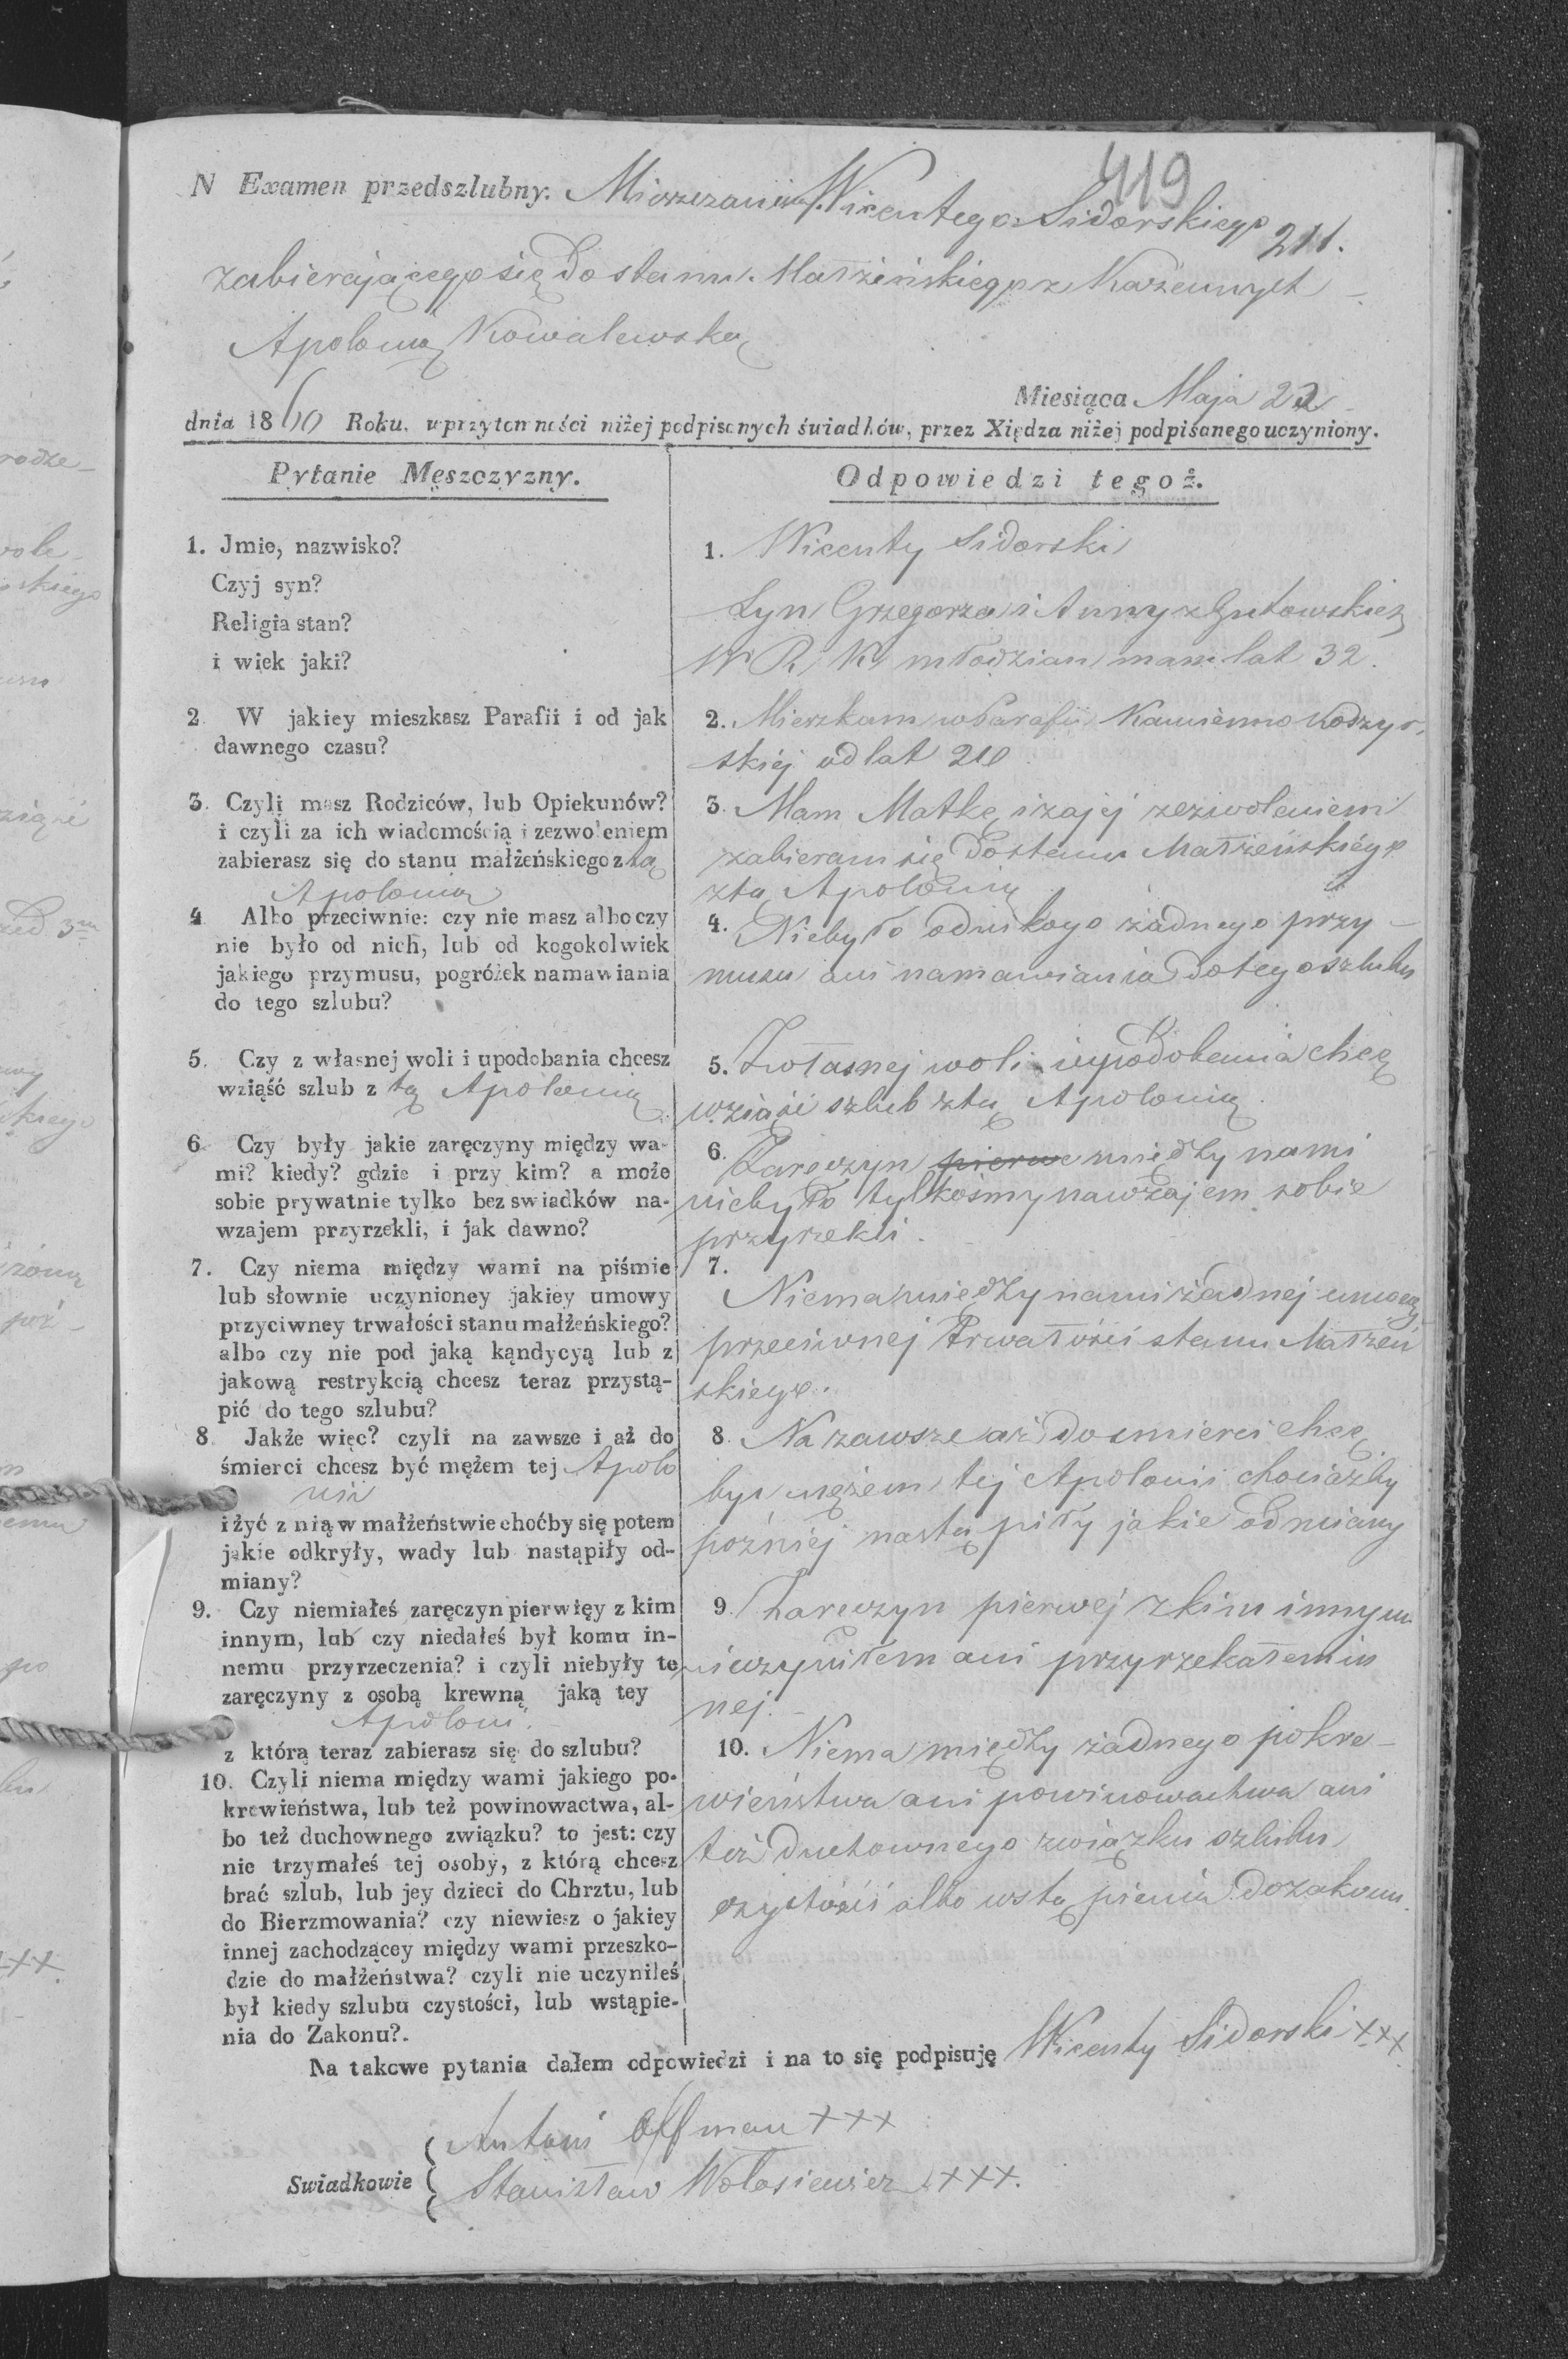 419
N Examen przedszlubny. Mieszczanina Wicentego Sidorskiego
211.
zabierającego się do stanu Małżeńskiego z
Apolonią Kowalewską
Miesiąca Maja 22
dnia 1860 Roku, w przytomności niżej podpisanych świadków, przez Xiędza niżej podpisanego uczyniony.
Pytanie Męszczyzny.
1. Jmie, nazwisko?
Czyj syn?
Religia stan?
i wiek jaki?
2. W jakiey mieszkasz Parafii i od jak
dawnego czasu?
3. Czyli masz Rodziców, lub Opiekunów?
i czyli za ich wiadomością i zezwoleniem
zabierasz się do stanu małżeńskiego z tą
Apolonią
4 Albo przeciwnie: czy nie masz albo czy
nie było od nich, lub od kogokolwiek
jakiego przymusu, pogróżek namawiania
do tego szlubu?
5. Czy z własnej woli i upodobania chcesz
wziąść szlub z tą Apolonią
6 Czy były jakie zaręczyny między wa-
mi? kiedy? gdzie i przy kim? a może
sobie prywatnie tylko bez swiadków na-
wzajem przyrzekli, i jak dawno?
7. Czy niema między wami na piśmie
lub słownie uczynioney jakiey umowy
przyciwney trwałości stanu małżeńskiego?
albo czy nie pod jaką kąndycyą lub z
jakową restrykcią chcesz teraz przystą-
pić do tego szlubu?
8 Jakże więc? czyli na zawsze i aż do
śmierci chcesz być mężem tej Apolo
nii
i żyć z nią w małżeństwie choćby się potem
jakie odkryły, wady lub nastąpiły od-
miany?
9. Czy niemiałeś zaręczyn pierwięy z kim
innym, lub czy niedałeś był komu in-
nemu przyrzeczenia? i czyli niebyły te
zaręczyny z osobą krewną jaką tey
Apoloni
z którą teraz zabierasz się do szlubu?
10. Czyli niema między wami jakiego po-
krewieństwa, lub też powinowactwa, al-
bo też duchownego związku? to jest: czy
nie trzymałeś tej osoby, z którą chcesz
brać szlub, lub jey dzieci do Chrztu, lub
do Bierzmowania? czy niewiesz o jakiey
innej zachodzącey między wami przeszko-
dzie do małżeństwa? czyli nie uczyniłeś
był kiedy szlubu czystości, lub wstąpie-
nia do Zakonu?.
Odpowiedzi tegoż.
1. Wicenty Sidorski
Syn Grzegorza i Anny z Gutowskich
W R K młodzian mam lat 32.
2. Mieszkam w Parafii Kamienno
skiej od lat
3. Mam Matkę i za jej zezwoleniem
zabieram się do stanu Małżeńskiego
z tą Apolonią
4. Niebyło od nikogo żadnego przy-
musu ani namawiania do tego szlubu
5. Z własnej woli i upodobania chcę
wziąść szlub z tą Apolonią.
6. Zaręczyn pierw między nami
niebyło tylkośmy nawzajem sobie
przyrzekli.
7. Niema między nami żadnej umowy
przeciwnej trwałości stanu Małżeń
skiego.
8. Na zawsze aż do smierci chcę
być mężem tej Apolonii chociażby
pozniej nastąpiły jakie odmiany
9. Zaręczyn pierwej z kim innym
nieczyniłem ani przyrzekałem in
nej.
10. Niema między żadnego pokre-
wieństwa ani powinowactwa ani
też duchownego związku szlubu
czystości albo wstąpienia do zakonu.
Na takowe pytania dałem odpowiedzi i na to się podpisuję Wicenty Sidorski +++
Swiadkowie
Antoni Offman +++
Stanisław Wołosiewicz +++.